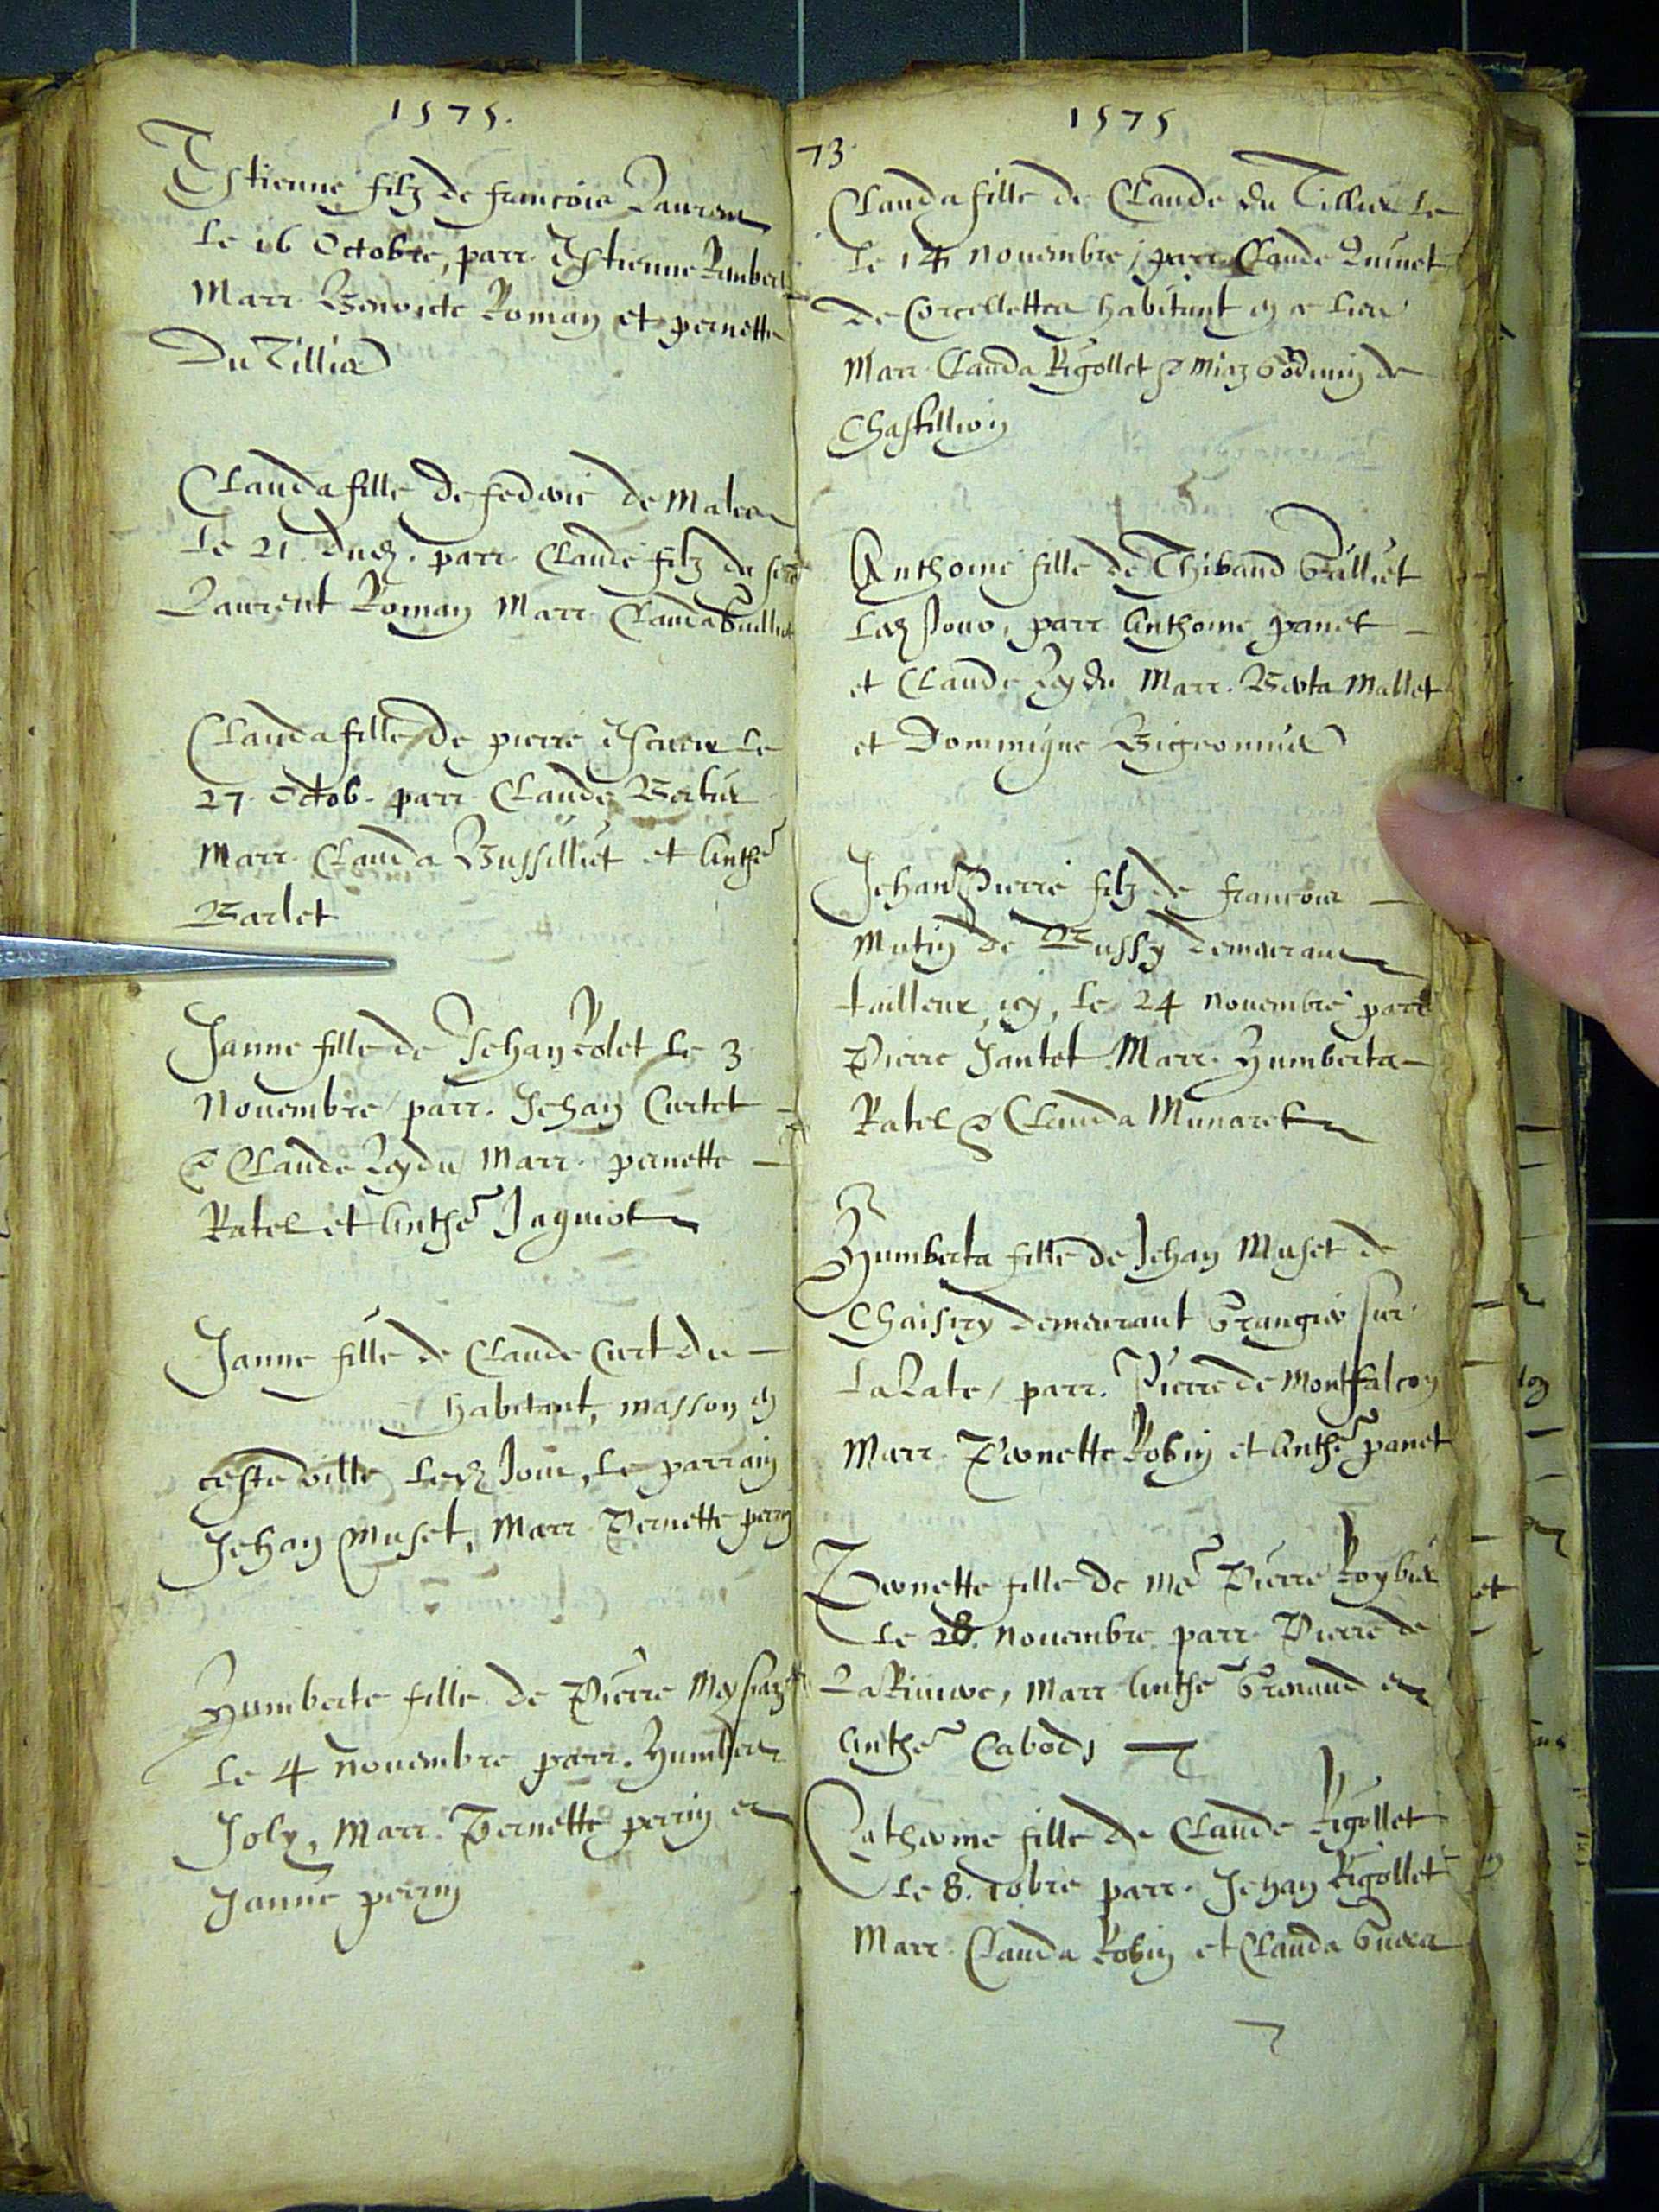 1575.
Estienne filz de francois Lauren
le 16 Octobre, parr. Estienne Rimbert
Marr. Benoicte Roman et pernette
Du Tillier
Clauda fille de fedric de Malcon
le 21. dud. parr. Claude filz du
Laurent Roman Marr. Clauda
Clauda fille de pierre le
27. Octob. parr. Claude Bertier
Marr. Clauda Bussilliet et Anthe
Barlet
Janne fille de Jehan Colet le 3
Novembre, parr. Jehan Curtet
& Claude Leydu Marr. pernette
Ratel et Anthe Jaquiot
Janne fille de Claude Curt du
habitant, masson en
ceste ville led Jour, le parrain
Jehan Muset, Marr. Pernette perrin
Humberte fille de Pierre
le 4 novembre parr. Humbert
Joly, Marr. Pernette perrin et
Janne perrin
1575
73.
Clauda fille de Claude du Tillier le
le 14 novembre, parr. Claude Quinet
de Corcelletes habitant en ce lieu
Marr. Clauda Rigollet & de
Chastillion
Anthonie fille de Thibaud Gilliet
led Jour, parr. Anthoine panet
et Claude Leydu Marr. Berta Mallet
et Dominique
Jehan Pierre filz de francois
Mutin de Bussy demeurant
tailleur, icy, le 24 novembre parr
Pierre Jantet Marr. Humberta
Ratel & Clauda Munaret
Humberta fille de Jehan Muset de
Chaisiry demeurant Grangier sur
la parr. Pierre de Montfalcon
Marr. Pernette Robin et Anthe panet
Pernette fille de Me Pierre
le 28. novembre parr. Pierre de
La Riviere, Marr Anthe Grenaud et
Anthe Cabodi
Catherine fille de Claude Rigollet
le 8. parr. Jehan Rigollet
Marr. Clauda Robin et Clauda